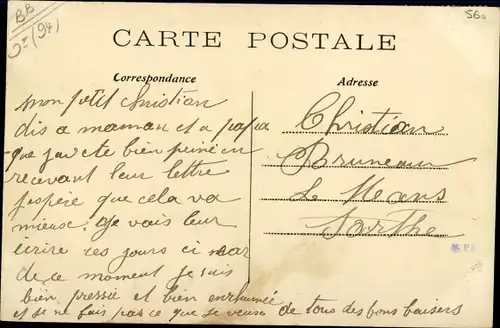 BB
(94)
560
CARTE POSTALE
Correspondance
Adresse
mon petit Christian
dis a maman et a papa
que j'ai ete bien peiné en
recevant leur lettre
j'espère que cela va
mieux. Je vais leur
écrire ces jours ci car
de ce moment je suis
bien pressée et bien enrhumée
et je ne fais pas ce que je veux de tous des bons baisers
Christian
Bruneau
Le Mans
Sarthe